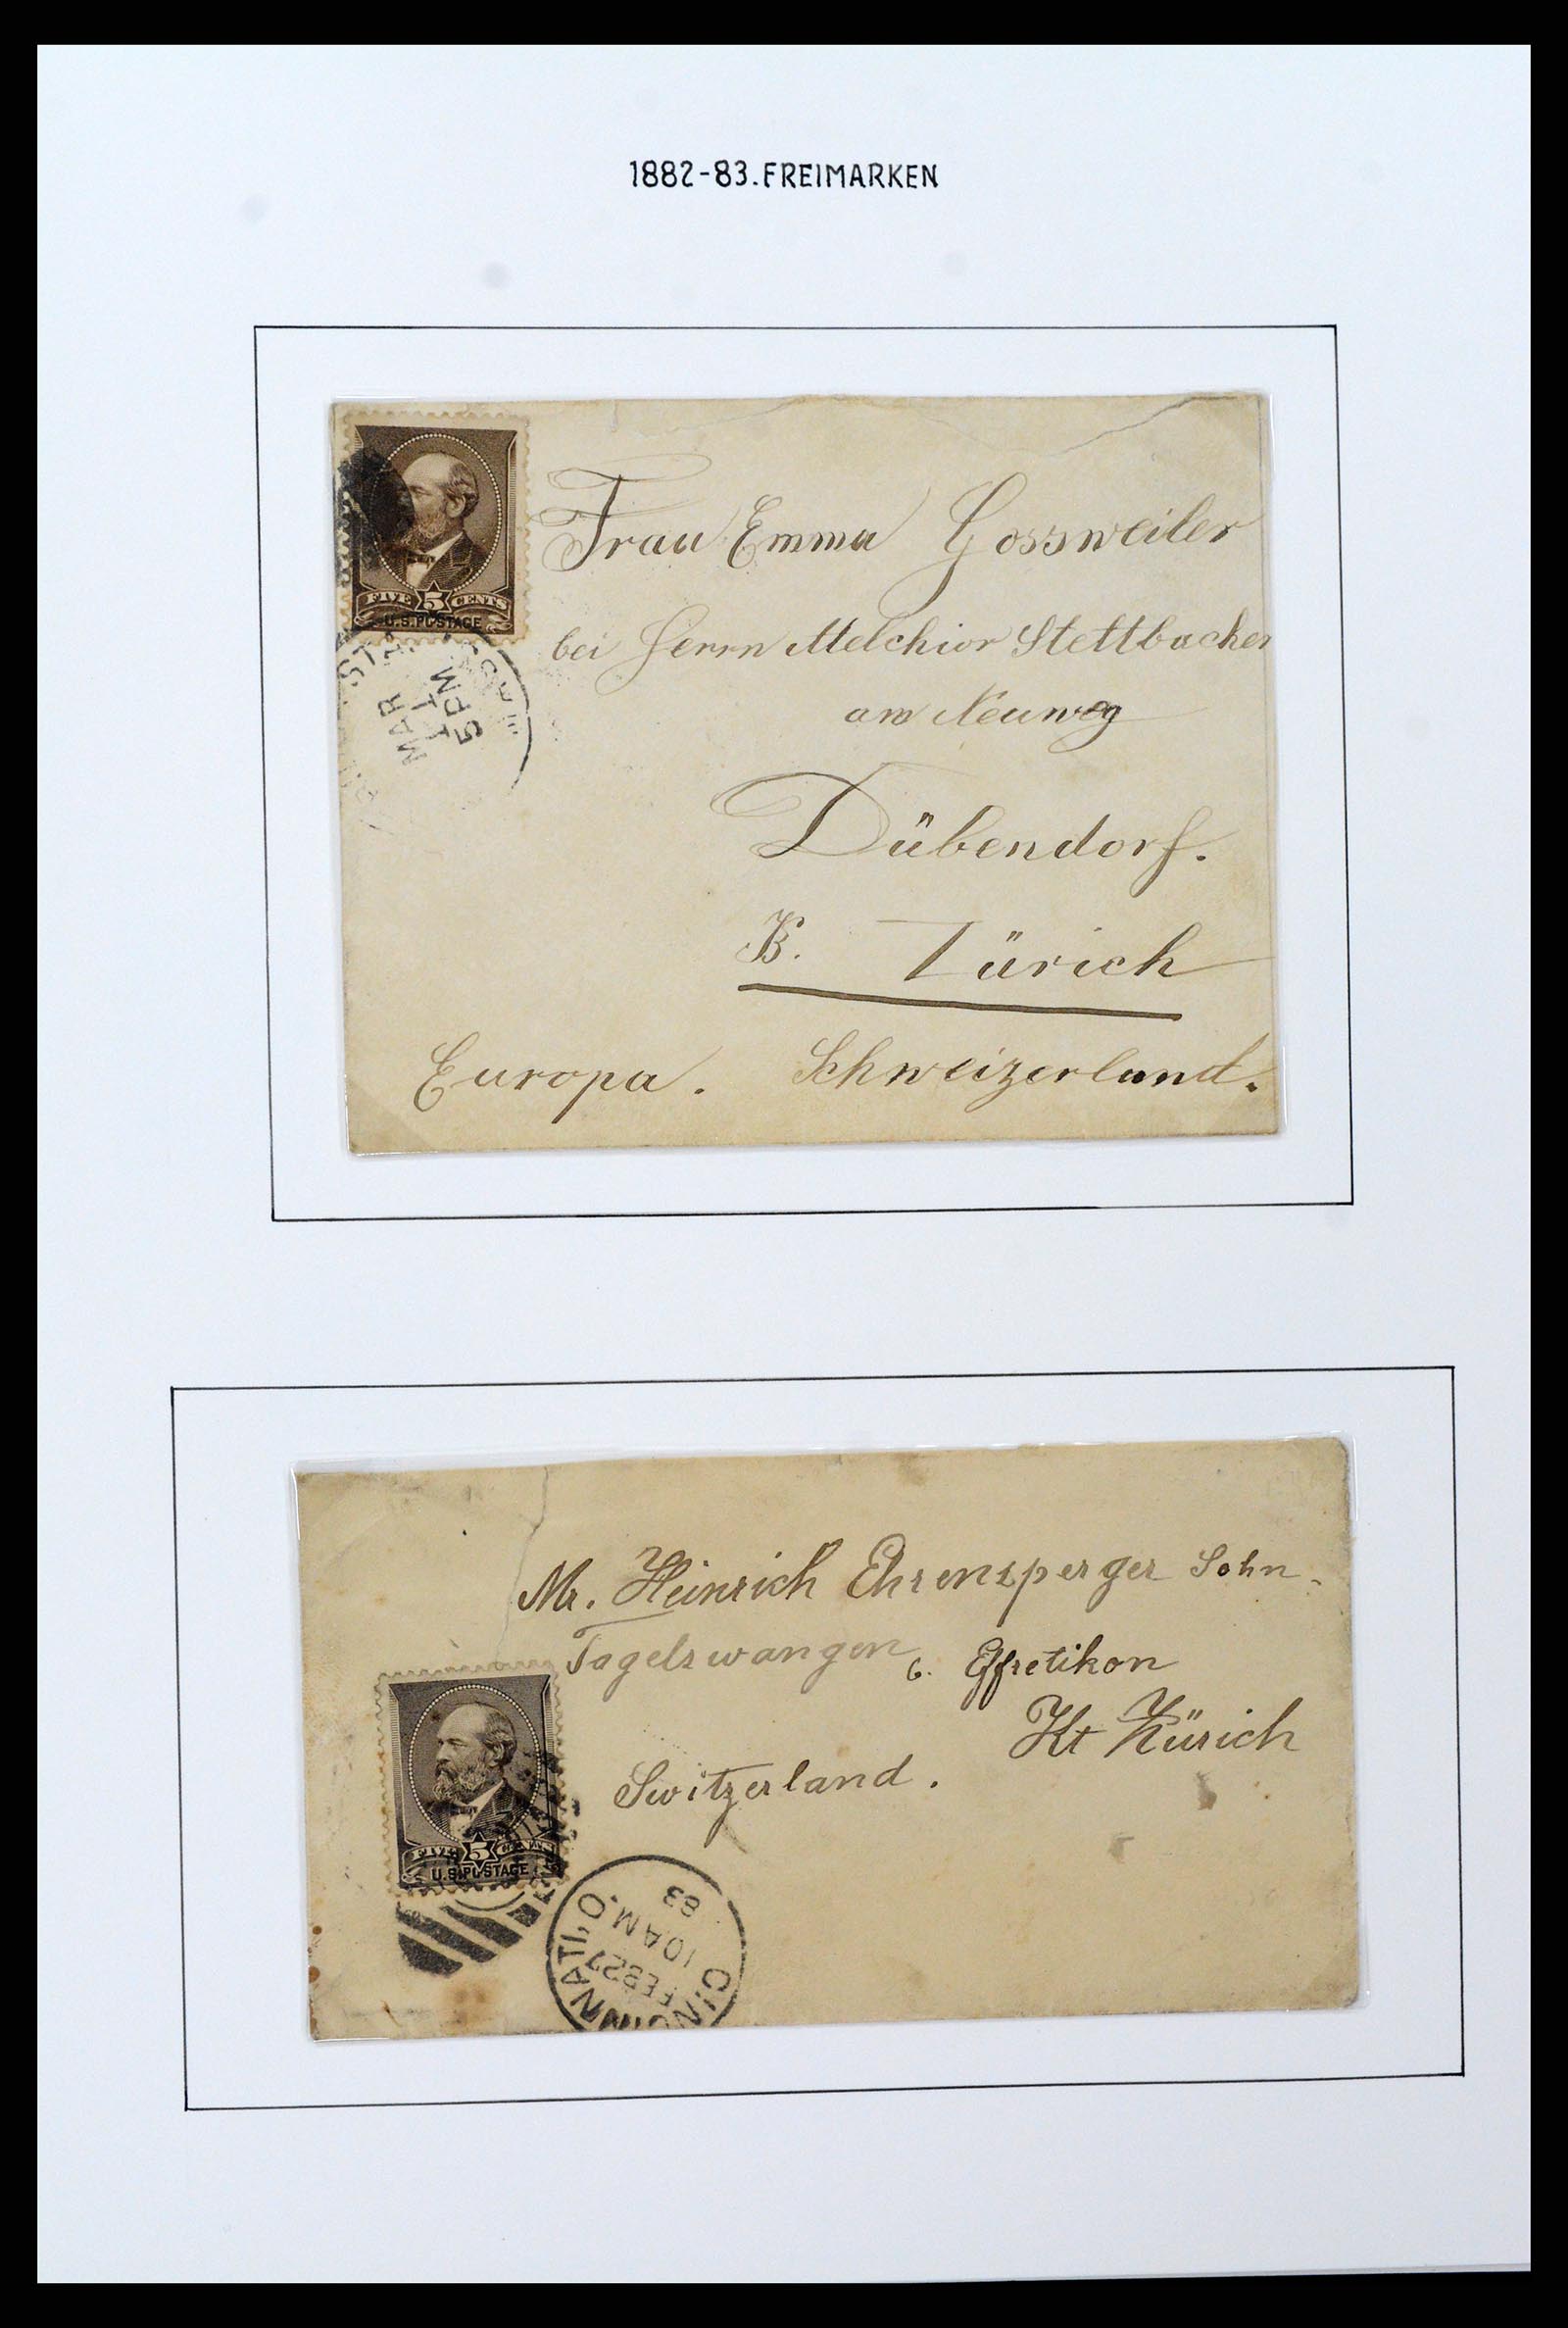 1882-83.FREIMARKEN
FIVE 5 CENTS
U.S. POSTAGE
MAR
11
5 PM
Frau Emma Gossweiler
bei Herrn Melchior Stettbacher
am Neuweg
Dübendorf.
K. Zürich
Europa. Schweizerland.
Mr. Heinrich Ehrensperger Sohn.
Tagelswangen b. Effretikon
Kt Zürich
Switzerland.
FIVE 5 CENTS
U.S. POSTAGE
CINCINNATI, O.
FEB 27
10 AM
83